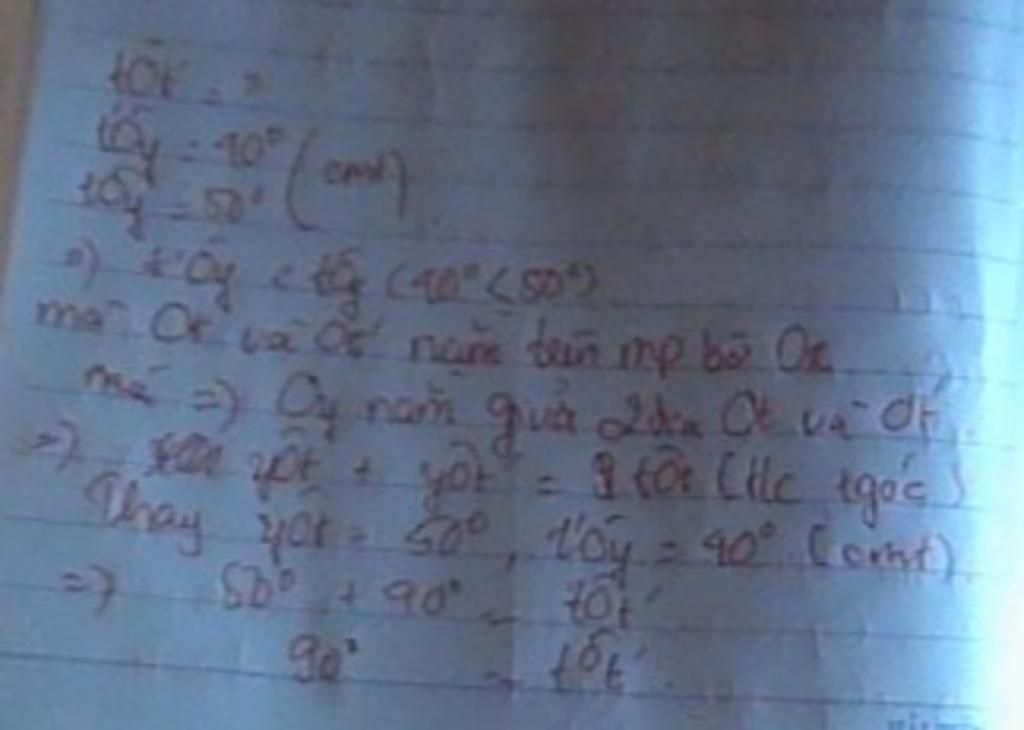 tÔt' = ?
t'Ôy = 40° (cmt)
tÔy = 50°
=) t'Ôy < tÔy (40° < 50°)
mà Ot và Ot' nằm trên mp bờ Ox
mà =) Oy nằm giữa 2 tia Ot và Ot'
=) yÔt + yÔt' = tÔt' (t/c góc)
Thay yÔt = 50°, t'Ôy = 40° (cmt)
=) 50° + 40° = tÔt'
90° = tÔt'